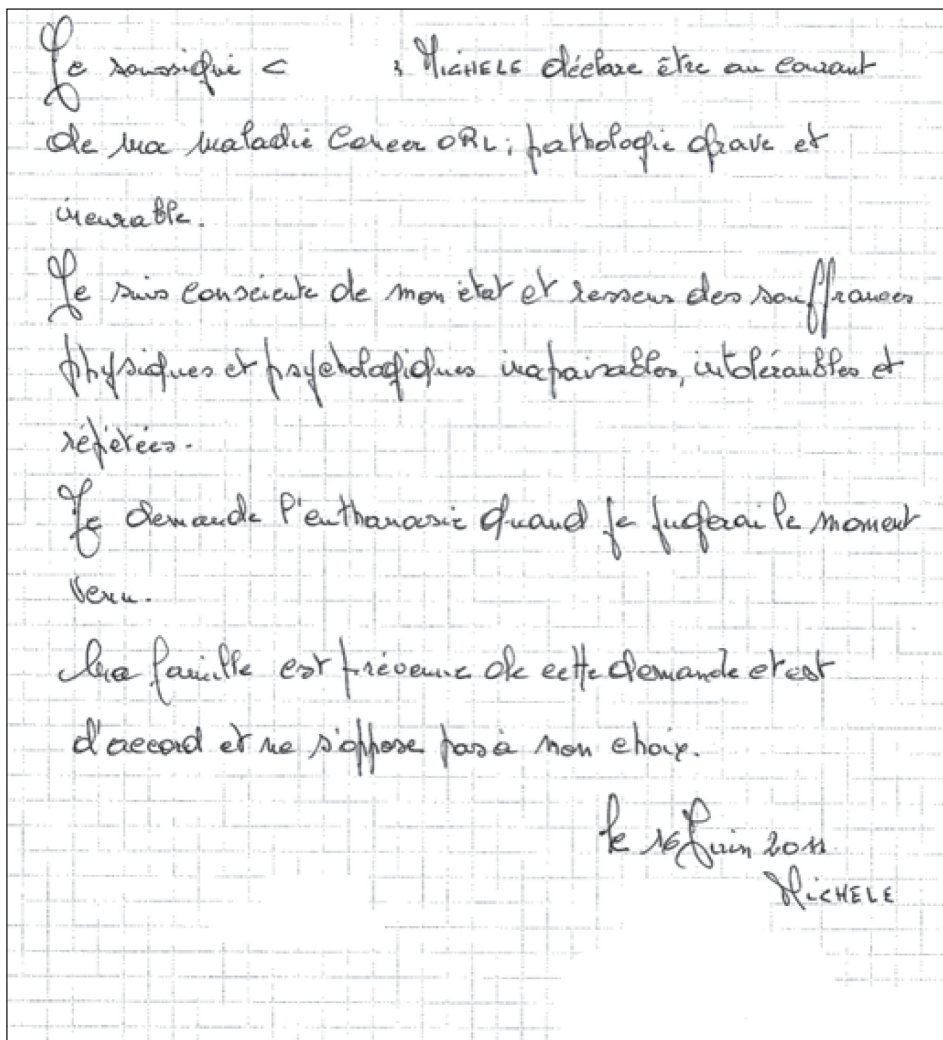 Je soussigné < , MICHELE déclare être au courant
de ma maladie Cancer ORL ; pathologie grave et
incurable.
Je suis consciente de mon état et ressens des souffrances
physiques et psychologiques inapaisables, intolérables et
répétées.
Je demande l'euthanasie quand je jugerai le moment
venu.
Ma famille est prévenue de cette demande et est
d'accord et ne s'oppose pas à mon choix.
le 16 Juin 2011
MICHELE